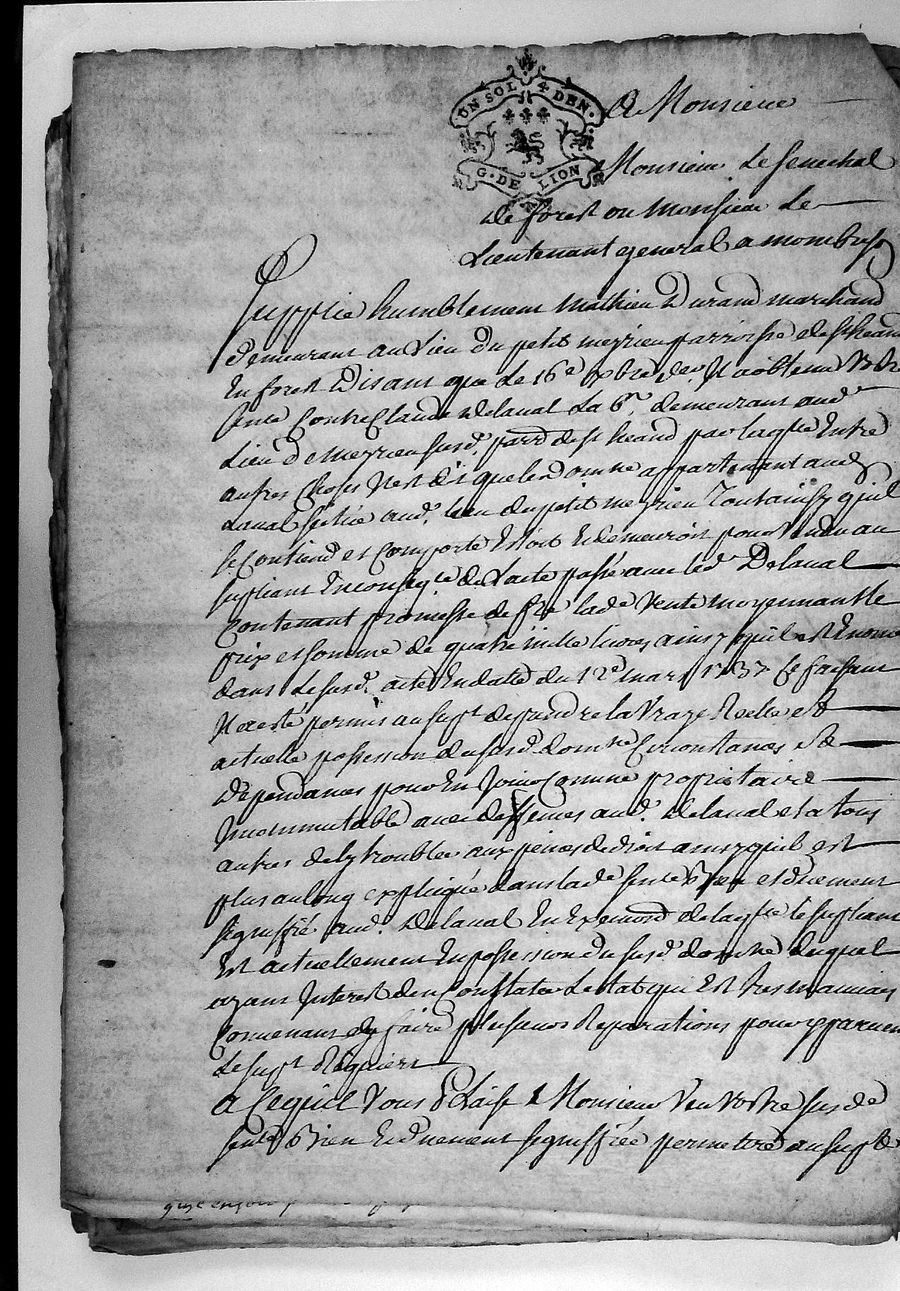 UN SOL 4 DEN.
G. DE LION
A Monsieur
Monsieur Le senechal
de forest ou Monsieur Le
Lieutenant general a
Supplie humblement Mathieu Durand marchand
demeurant au Lieu du petit meyrieu parroisse de
En forest Disant que Le 16e Il a obtenu Votre
contre Claude Delaval La demeurant aud
Lieu de Meyrieu susd. par laqlle Entre
autres choses Il est dit que le domne appartenant aud
Laval scitué aud. lieu du petit meyrieu tout ainsy quil
se Contient et Comporte Estoit Et demeuroit pour Vendu au
supliant En conseqce de Lacte passé avec led Delaval
Contenant promesse de lade Vente moyennant le
prix et somme de quatre mille livres ainsy quil est Enoncé
dans Le susd. acte En datte du 12e mars 1737 Ce faisant
Il a esté permis au supt de prendre la Vraye Reelle et
actuelle possession du susd. domne Circonstances Et
Dependances pour En Jouir Comme proprietaire
Incommutable avec deffenses aud. Delaval et a tous
autres de ly troubler aux peines de droit ainsy quil est
plus au long expliqué dans lade et duement
signiffié aud. Delaval En de laqlle le supliant
Est actuellement En possession du susd. domne duquel
ayant Interest den Constater Lestat qui Est tres mauvais
Convenant dy faire plusieurs Reparations pour y parvenir
Le supt Requiert
A Ce quil Vous Plaise Monsieur Veu Votre susde
bien Et duement signiffiée permettre au supt de